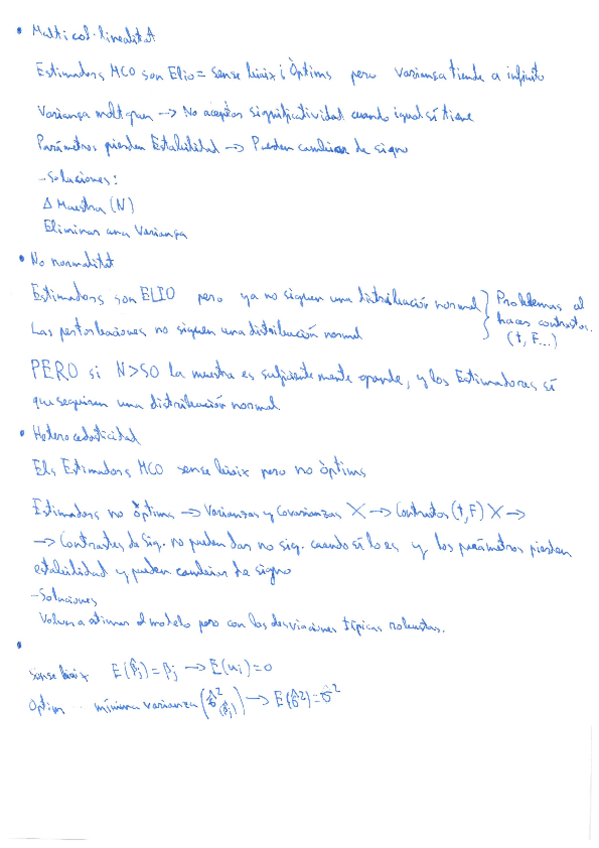 • Multicol·linealitat
Estimadors MCO son Elio = sense biaix i Òptims pero varianza tiende a infinito
Varianza molt gran --> No aceptas significatividad cuando igual sí tiene
Parámetros pierden Estabilidad → Pueden cambiar de signo
- Soluciones:
Δ Muestra (N)
Eliminar una Varianza
• No normalitat
Estimadors son ELIO pero ya no siguen una distribución normal } Problemas al
Las perturbaciones no siguen una distribución normal
hacer contrastos
(t, F...)
PERO si N>50 la muestra es suficientemente grande, y los Estimadores sí
que seguiran una distribución normal
• Heterocedasticidad
Els Estimadors MCO sense biaix pero no òptims
Estimadors no òptims → Varianzas y Covarianzas X → Contrastos (t,F) X →
→ Contrastes de Sig. no pueden dar no sig. cuando sí lo es y los parámetros pierden
estabilidad y pueden cambiar de signo
- Soluciones
Volver a estimar el modelo pero con las desviaciones típicas robustas.
•
sense biaix E(β̂j) = βj → E(ui) = 0
Optim mínima varianza (σ̂²(β̂j)) → E(σ̂²) = σ²